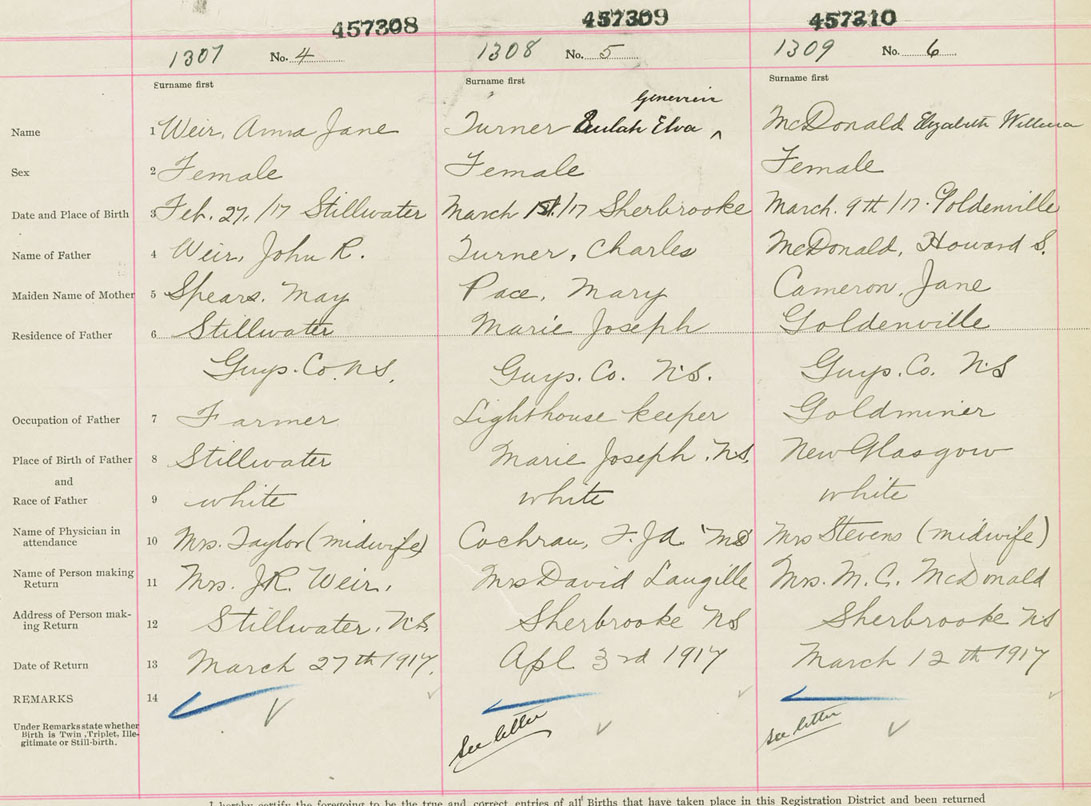 457308 457309 457310
1307 No. 4 1308 No. 5 1309 No. 6
Surname first Surname first Surname first
Genevive
Name 1 Weir, Anna Jane Turner Beulah Elva ^ McDonald Elizabeth Willena
Sex 2 Female Female Female
Date and Place of Birth 3 Feb. 27, /17 Stillwater March 1st /17 Sherbrooke March. 9th /17. Goldenville
Name of Father 4 Weir, John R. Turner, Charles McDonald, Howard S.
Maiden Name of Mother 5 Spears, May Pace, Mary Cameron, Jane
Residence of Father 6 Stillwater Marie Joseph Goldenville
Guys. Co. N.S. Guys. Co. N.S. Guys. Co. N.S
Occupation of Father 7 Farmer Lighthouse keeper Goldminer
Place of Birth of Father 8 Stillwater Marie Joseph. N.S. New Glasgow
and
Race of Father 9 white white white
Name of Physician in
attendance 10 Mrs. Taylor (midwife) Cochran, MD Mrs Stevens (midwife)
Name of Person making
Return 11 Mrs. J.R. Weir, Mrs David Langille Mrs. M. C. McDonald
Address of Person mak-
ing Return 12 Stillwater, N.S. Sherbrooke NS Sherbrooke NS
Date of Return 13 March 27th 1917. Apl 3rd 1917 March 12th 1917
REMARKS 14
Under Remarks state whether
Birth is Twin, Triplet, Ille-
gitimate or Still-birth.
see letter see letter
I hereby certify the foregoing to be the true and correct entries of all Births that have taken place in this Registration District and been returned